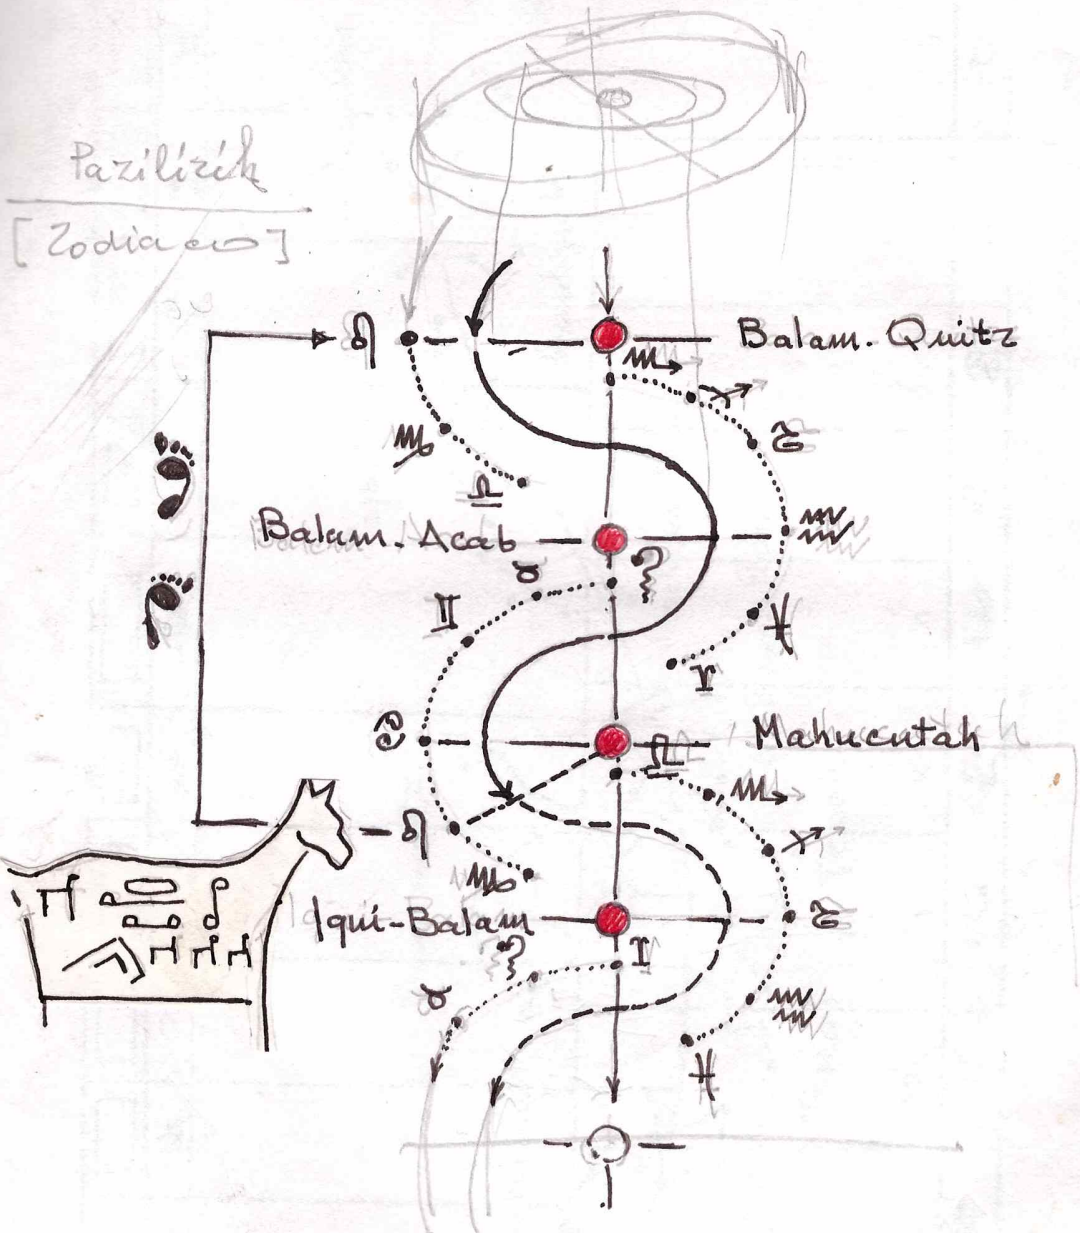 Pazilizik
[Zodiaco]
Balam. Quitz
Balam. Acab
Mahucutah
Iqui-Balam